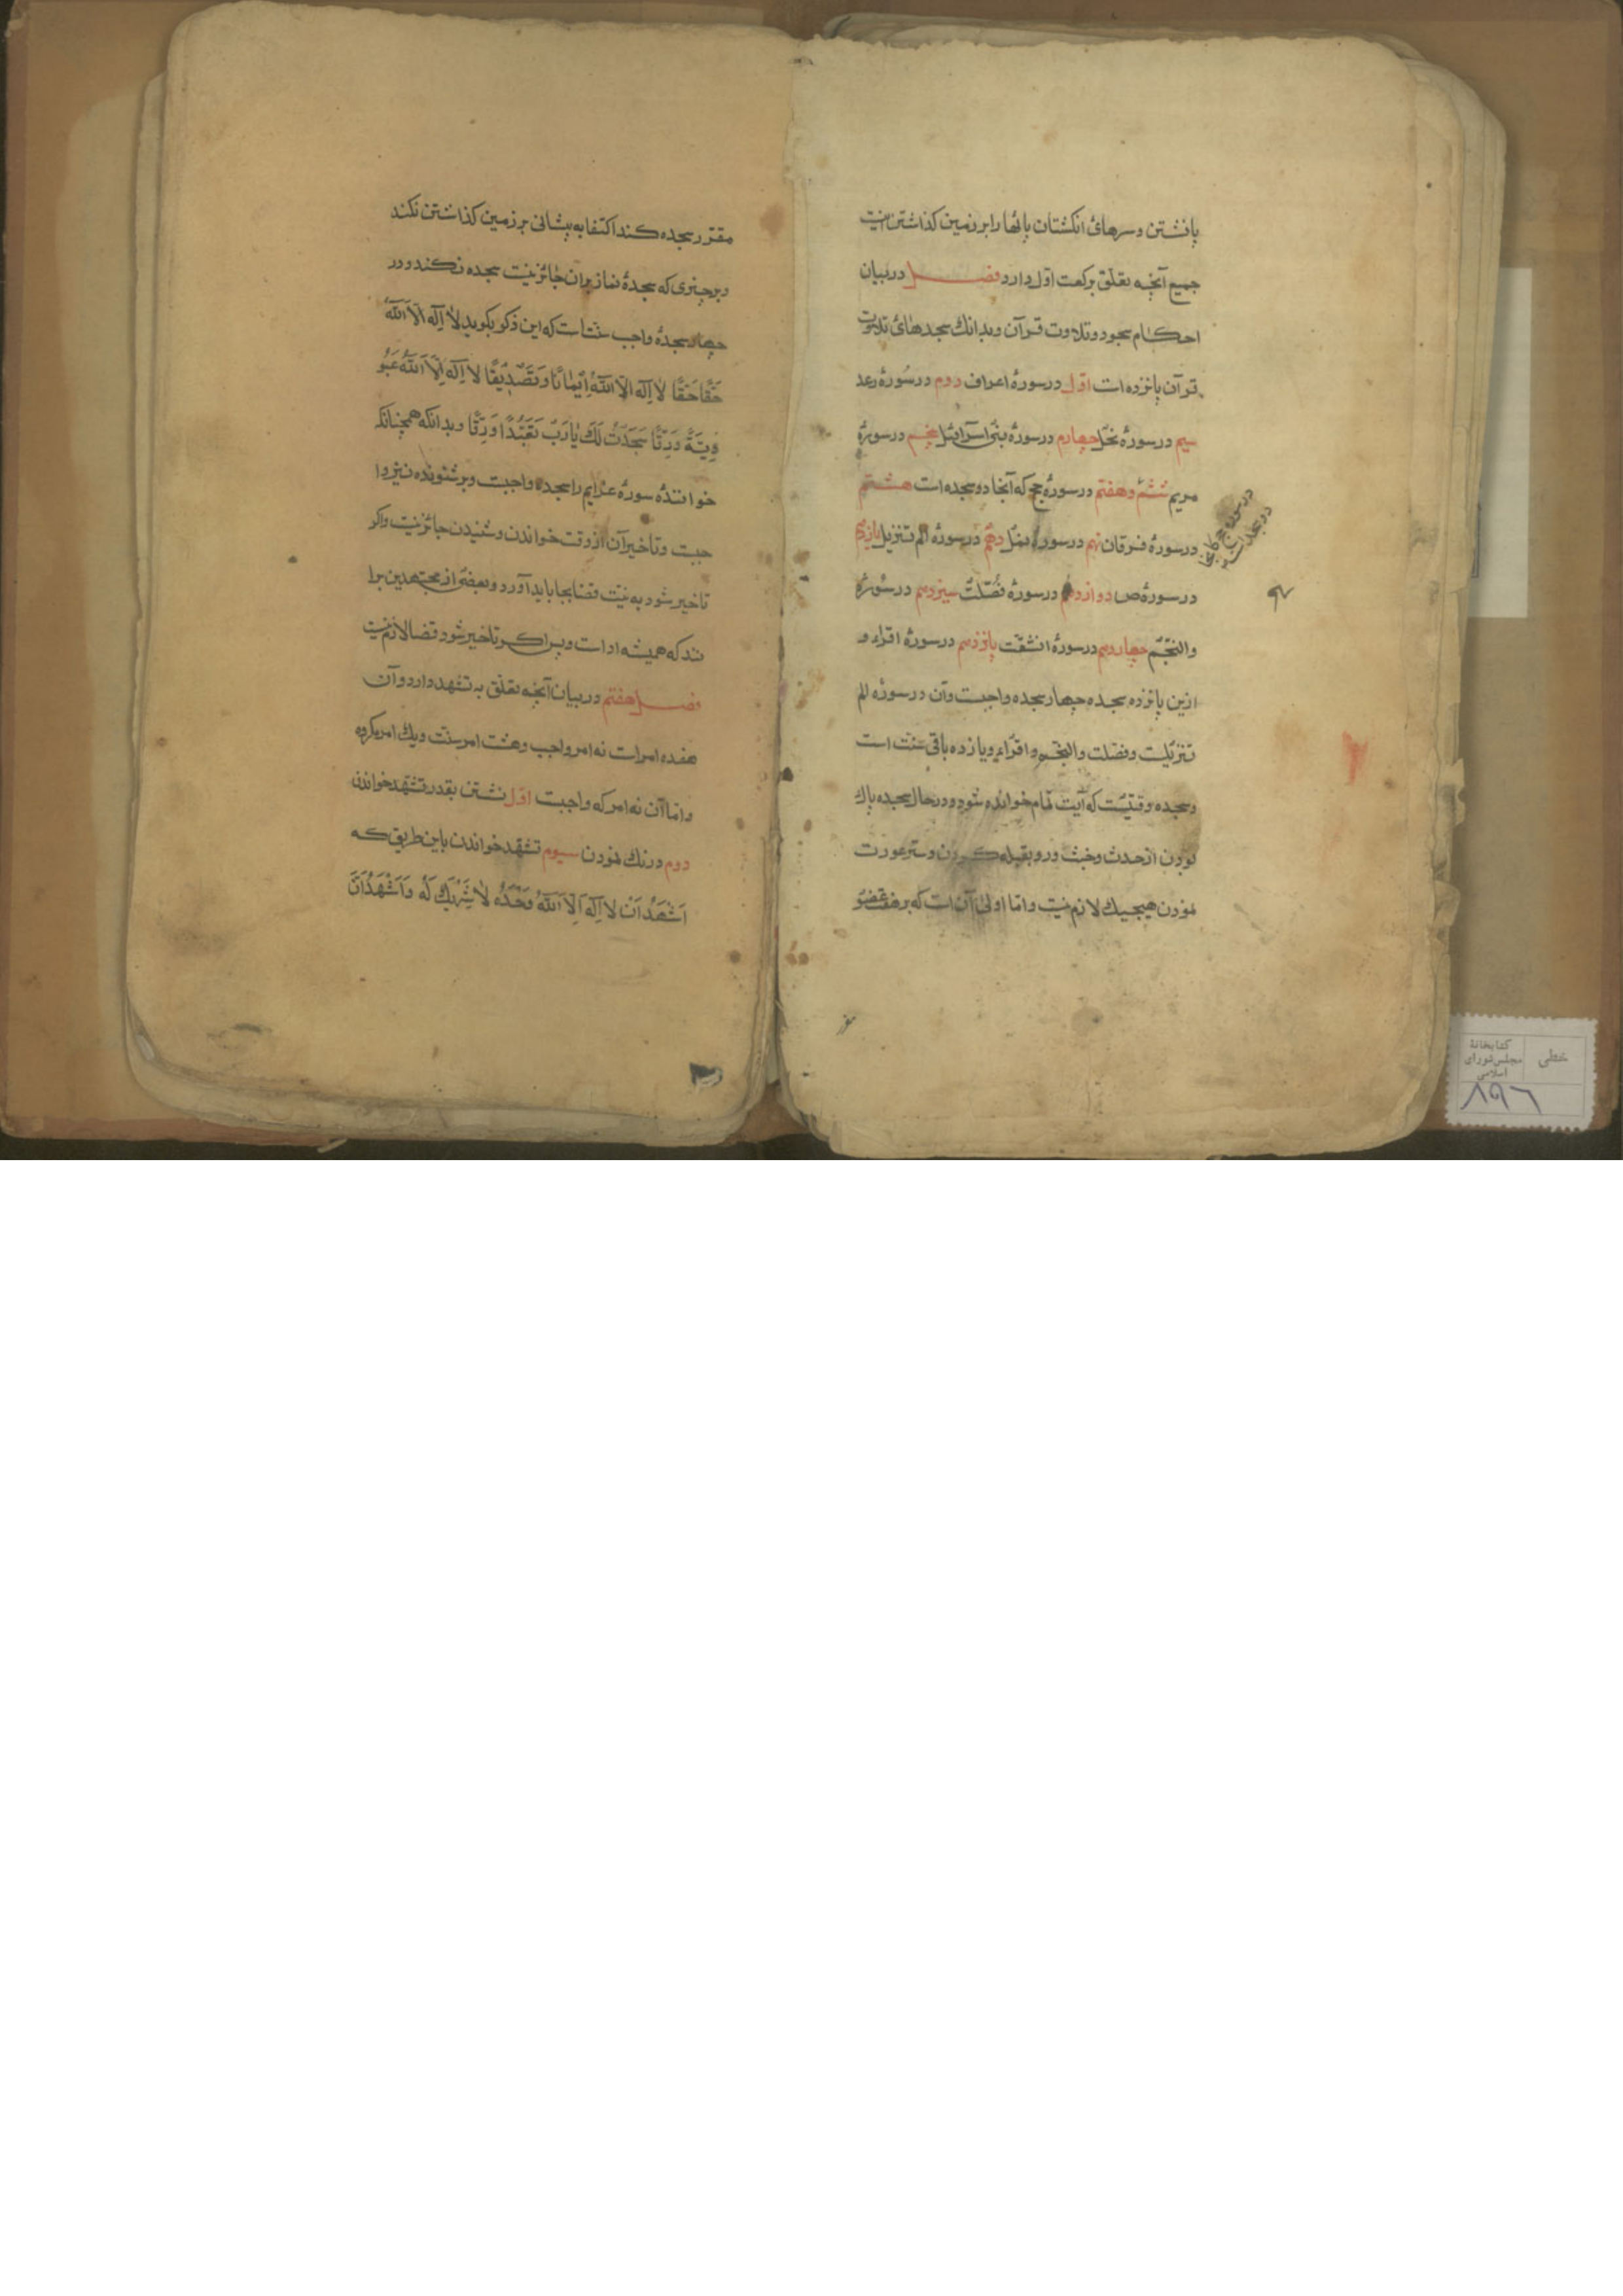 پانشتن و سرهای انکشتان پائها را بر زمین کذاشتن اینست
جمیع آنچه تعلّق برکعت اوّل دارد فصل در بیان
احکام سجود و تلاوت قرآن و بدانك سجدهای تلاوت
قرآن پانزده است اوّل در سورهٔ اعراف دوم در سورهٔ رعد
سیم در سورهٔ نحل چهارم در سورهٔ بنی اسرائیل پنجم در سورهٔ
مریم ششم و هفتم در سورهٔ حج که آنجا دو سجده است هشتم
در سورهٔ فرقان نهم در سورهٔ نمل دهم در سورهٔ الم تنزیل یازدهم
در سورهٔ ص دوازدهم در سورهٔ فُصّلت سیزدهم در سورهٔ
والنجم چهاردهم در سورهٔ انشقّت پانزدهم در سورهٔ اقراء و
ازین پانزده سجده چهار سجده واجبست و آن در سورهٔ الم
تنزیلست و فصّلت و النجم و اقراء و یازده باقی سنّت است
و سجده وقتیست که آیت تمام خوانده شود و در حال سجده پاك
بودن از حدث و خبث و رو بقبله کردن و ستر عورت
نمودن هیچیك لازم نیست و امّا اولی آن است که بر هفت عضو
در سورهٔ حج کانجا
مقرّر سجده کند اکتفا به پیشانی بر زمین کذاشتن نکند
و بر چیزی که سجدهٔ نماز بران جائز نیست سجده نکند و در
چهار سجدهٔ واجب سنّتست که این ذکر بکوید لا اِلٰه الّا اللّٰه
حَقًّا حَقًّا لا اِلٰه الّا اللّٰه اِیمانًا وَ تَصْدِیقًا لا اِلٰه اِلّا اللّٰه عُبُو
دِیَّةً وَرِقًّا سَجَدْتُ لَكَ یا رَبِّ تَعَبُّدًا وَرِقًّا و بدانکه همچنانکه
خوانندهٔ سورهٔ عزایم را سجده واجبست و بر شنونده نیز وا
جبست و تاخیر آن از وقت خواندن و شنیدن جائز نیست و اکر
تاخیر شود به نیّت قضا بجا باید آورد و بعضی از مجتهدین برا
نند که همیشه اداست و پس اکر تاخیر شود قضا لازم نیست
فصل هفتم در بیان آنچه تعلّق به تشهد دارد و آن
هفده امر است نه امر واجب و هشت امر سنّت و یك امر مکروه
و امّا آن نه امر که واجبست اوّل نشستن بقدر تشهد خواندن
دوم درنك نمودن سیوم تشهّد خواندن باین طریق که
اَشْهَدُ اَنْ لا اِلٰهَ اِلَّا اللّٰهُ وَحْدَهُ لا شَرِیكَ لَهُ وَ اَشْهَدُ اَنَّ
خطی
کتابخانهٔ
مجلس شورای
اسلامی
۸۹۶